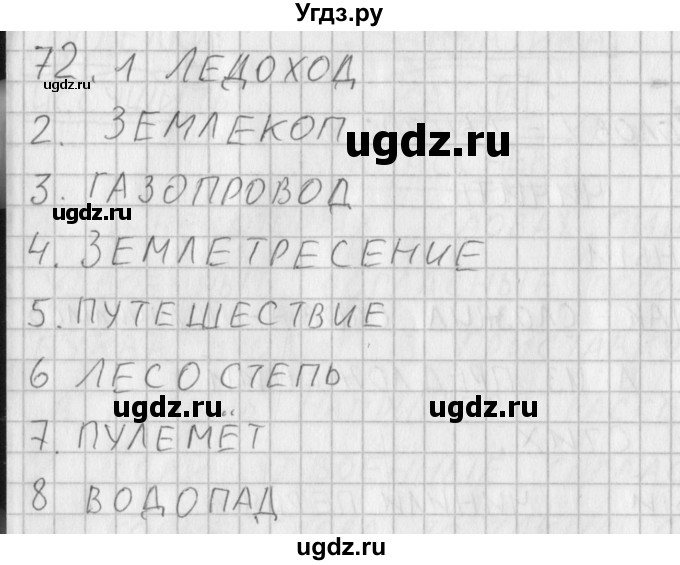 Угдз.ру
72. 1 ЛЕДОХОД
ugdz.ru
2. ЗЕМЛЕКОП
ugdz.ru
3. ГАЗОПРОВОД
ugdz.ru
4. ЗЕМЛЕТРЕСЕНИЕ
5. ПУТЕШЕСТВИЕ
6 ЛЕСОСТЕПЬ
ugdz.ru ugdz.ru
7. ПУЛЕМЁТ
8 ВОДОПАД
ugdz.ru